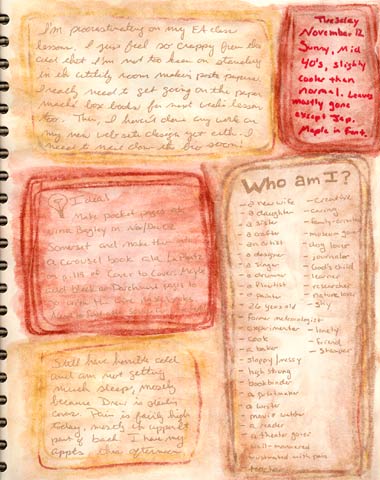 I'm procrastinating on my EA class
lesson. I just feel so crappy from the
cold that I'm not too keen on standing
in the utility room making paste papers.
I really need to get going on the paper
maché box books for next week's lesson
too. Then, I haven't done any work on
my new web site design yet either. I
need to narrow down the bio soon!
Tuesday
November 12
Sunny, Mid
40's, slightly
cooler than
normal. Leaves
mostly gone
except Jap.
Maple in Front.
Idea!
Make pocket pages
in Nov/Dec 02
Somerset and make them into
a carousel book a la
p. 115 of Cover to Cover. Maybe
add black or Parchment pages to
go with the
Who am I?
- a new wife
- a daughter
- a sister
- a crafter
- an artist
- a designer
- a singer
- a drummer
- a flautist
- a painter
- 26 years old
- former meteorologist
- experimenter
- cook
- a baker
- sloppy/messy
- high strung
- bookbinder
- a printmaker
- a writer
- movie watcher
- a reader
- a theater goer
- well-mannered
- frustrated with pain
- teacher
- creative
- caring
- family-oriented
- museum goer
- dog lover
- journaler
- God's child
- learner
- researcher
- nature lover
- shy
- lonely
- friend
- shopper
Still have horrible cold
and am not getting
much sleep, mostly
because Drew is stealing
covers. Pain is fairly high
today, mostly in upper
part of back. I have my
appts this afternoon.